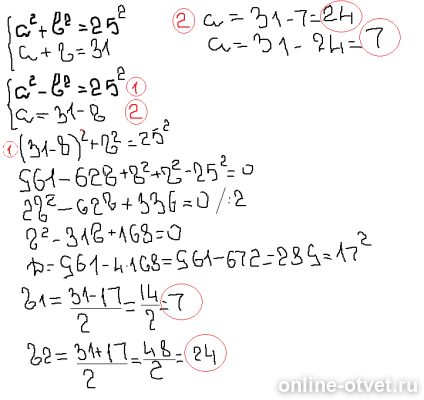 { a² + b² = 25²
a + b = 31
{ a² - b² = 25² ①
a = 31 - b ②
① (31 - b)² + b² = 25²
961 - 62b + b² + b² - 25² = 0
2b² - 62b + 336 = 0 /:2
b² - 31b + 168 = 0
D = 961 - 4·168 = 961 - 672 = 289 = 17²
b1 = (31-17)/2 = 14/2 = 7
b2 = (31+17)/2 = 48/2 = 24
② a = 31 - 7 = 24
a = 31 - 24 = 7
online-otvet.ru